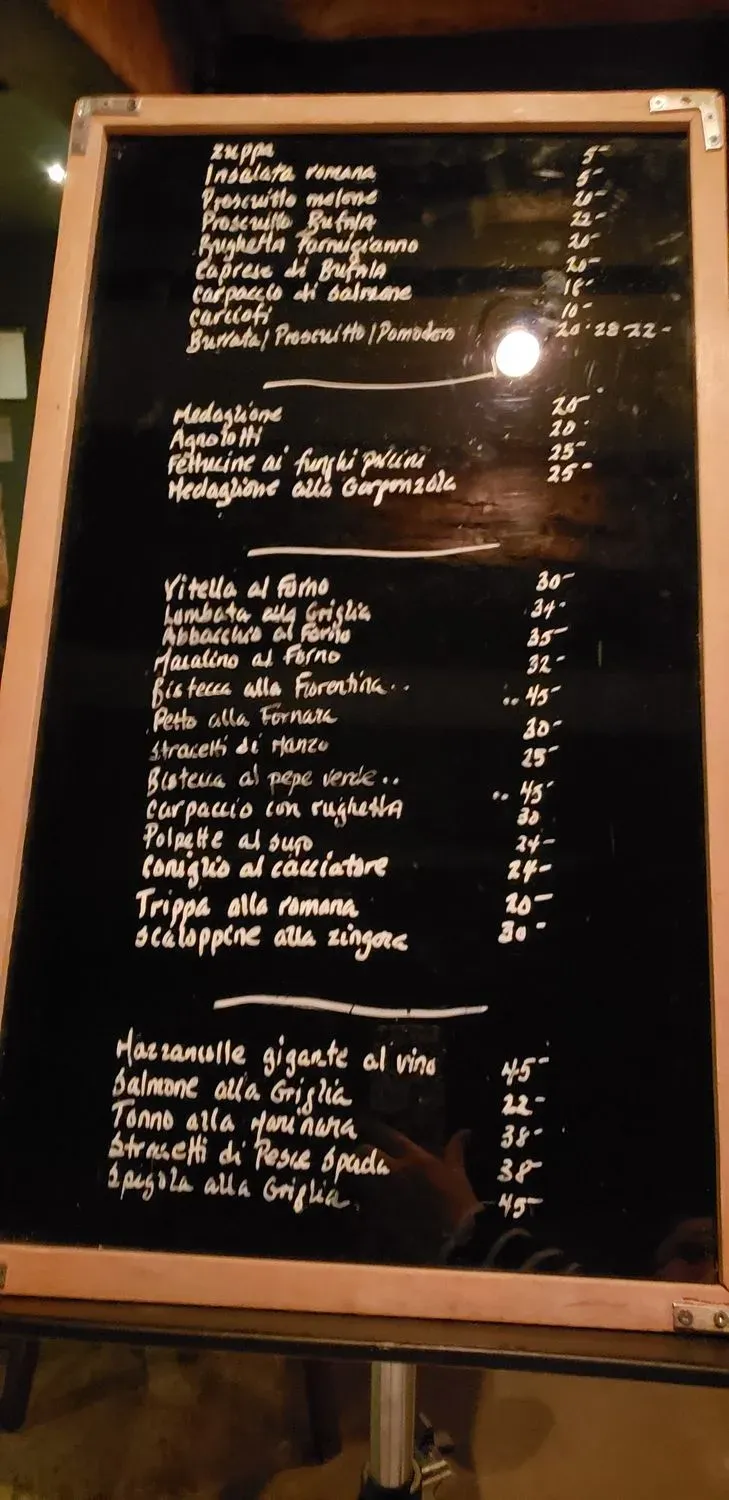 zuppa 5-
Insalata romana 5-
Proscuitto melone 20-
Proscuitto Bufala 22-
Rughetta Parmigianno 20-
Caprese di Bufala 20-
Carpaccio di Salmone 18-
Carciofi 10-
Burrata/Proscuitto/Pomodoro 20-28 22-
Medaglione 20
Agnolotti 20
Fettucine ai funghi porcini 25-
Medaglione alla Gorgonzola 25-
Vitella al Forno 30-
Lombata alla Griglia 34-
Abbacchio al Forno 35-
Maialino al Forno 32-
Bistecca alla Fiorentina.. ..45-
Petto alla Fornara 30-
Stracetti di Manzo 25-
Bistecca al pepe verde.. ..45-
Carpaccio con rughetta 30
Polpette al sugo 24-
Coniglio al cacciatore 24-
Trippa alla romana 20-
Scaloppine alla zingara 30-
Mazzancolle gigante al vino 45-
Salmone alla Griglia 22-
Tonno alla Marinara 38-
Stracetti di Pesce Spada 38-
Spigola alla Griglia 45-